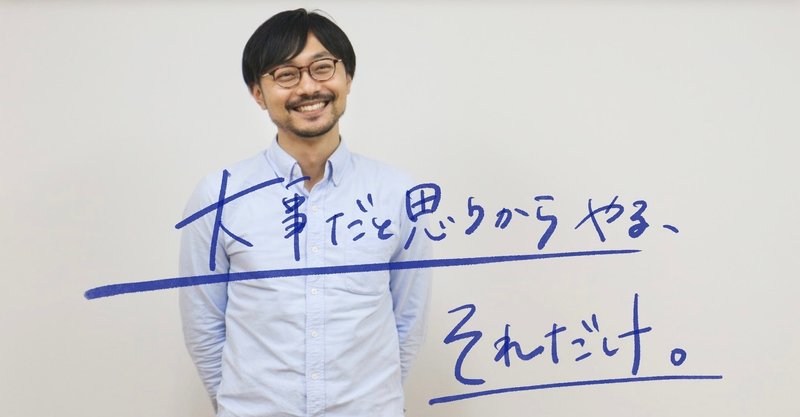 大事だと思うからやる、
それだけ。